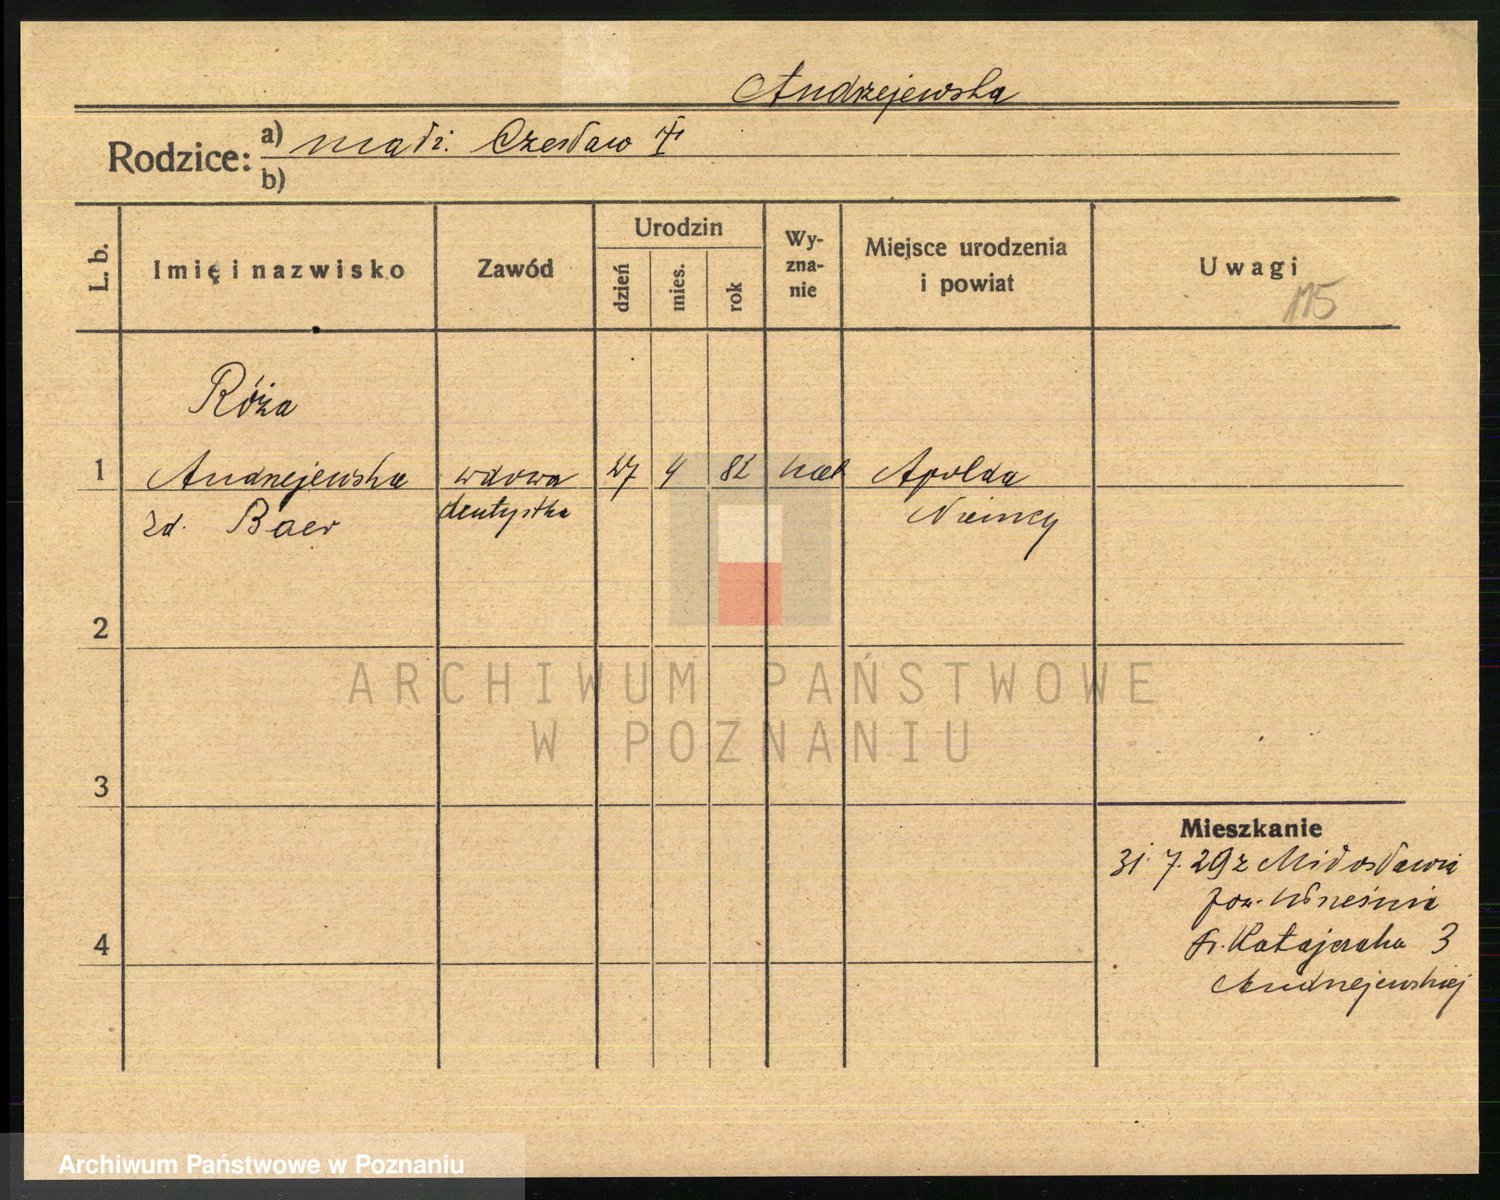 Andrzejewska
Rodzice: a) małż. Czesław
b)
L. b.
Imię i nazwisko
Zawód
Urodzin
dzień
mies.
rok
Wy-
zna-
nie
Miejsce urodzenia
i powiat
Uwagi
115
Róża
1 Andrzejewska wdowa 27 4 82 Apolda
zd. Baer dentystka Niemcy
2
3
4
Mieszkanie
31.7.29 z Miłosławia
pow. Września
Andrzejewskiej
ARCHIWUM PAŃSTWOWE
W POZNANIU
Archiwum Państwowe w Poznaniu